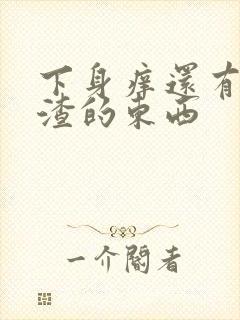 下身痒還有
渣的東西
一介閣者